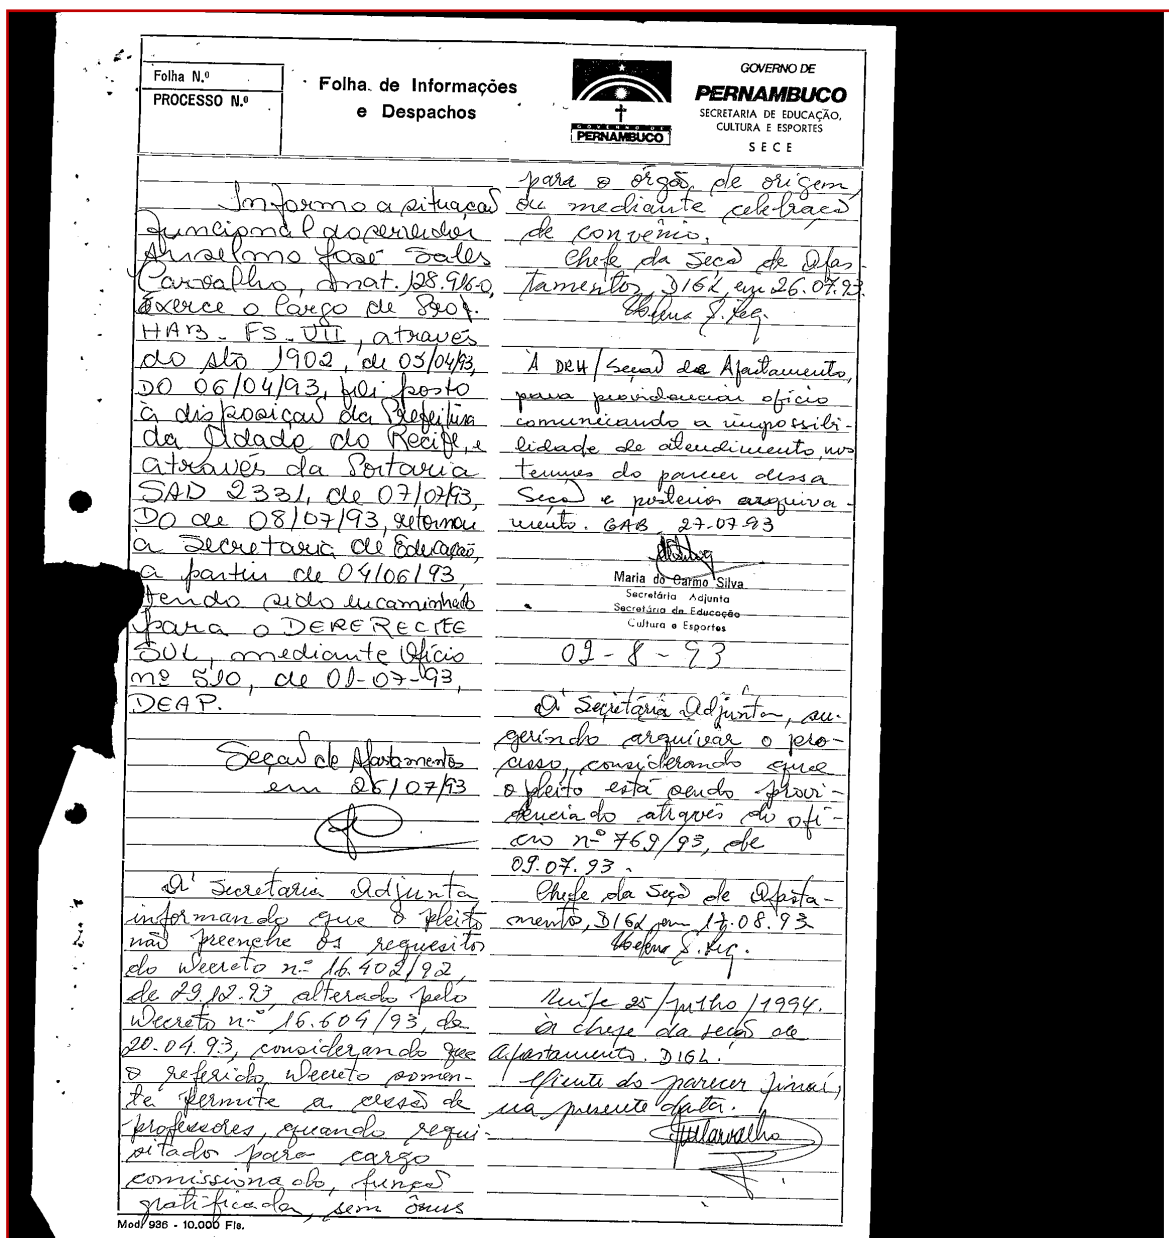 Folha N.º
PROCESSO N.º
Folha de Informações
e Despachos
GOVERNO DE
PERNAMBUCO
GOVERNO DE
PERNAMBUCO
SECRETARIA DE EDUCAÇÃO,
CULTURA E ESPORTES
SECE
Informo a situação
funcional do servidor
Anselmo José Sales
Carvalho, mat. 128.916-0,
exerce o Cargo de Prof.
HAB. FS-VII, através
do Ato 1902, de 05/04/93,
DO 06/04/93, foi posto
à disposição da Prefeitura
da Cidade do Recife, e
através da Portaria
SAD 2331, de 07/07/93,
DO de 08/07/93, retornou
a Secretaria de Educação,
a partir de 04/06/93,
tendo sido encaminhado
para o DERE RECIFE
SUL, mediante Ofício
nº 510, de 01-07-93,
DEAP.
Seção de Afastamentos
em 26/07/93
À Secretaria Adjunta
informando que o pleito
não preenche os requesitos
do Decreto nº 16.402/92,
de 29.12.93, alterado pelo
Decreto nº 16.604/93, de
20.04.93, considerando que
o referido Decreto somen-
te permite a cessão de
professores, quando requi-
sitado para cargo
comissionado, função
gratificada, sem ônus
para o órgão de origem,
ou mediante celebração
de convênio.
Chefe da Seção de Afas-
tamentos, DIGL, em 26.07.93.
À DRH/Seção de Afastamento,
para providenciar ofício
comunicando a impossibi-
lidade de atendimento, nos
termos do parecer dessa
Seção e posterior arquiva-
mento. GAB, 27-07-93
Maria do Carmo Silva
Secretária Adjunta
Secretária de Educação
Cultura e Esportes
02-8-93
À Secretária Adjunta, su-
gerindo arquivar o pro-
cesso, considerando que
o pleito está sendo provi-
denciado através do ofí-
cio nº 769/93, de
09.07.93.
Chefe da Seção de Afasta-
mento, DIGL, em 17.08.93
Recife 25/julho/1994.
à chefe da seção de
Afastamento. DIGL.
Ciente do parecer final,
na presente data.
Mod. 936 - 10.000 Fls.